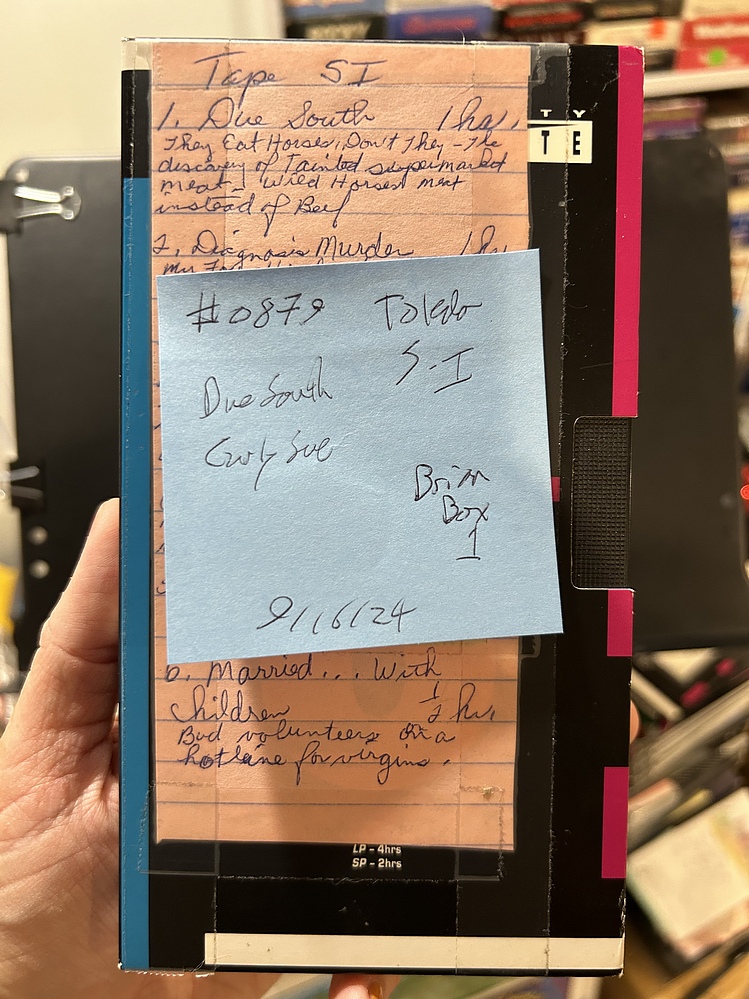 Tape SI
1. Due South 1 hr.
They Eat Horses, Don't They - The
discovery of Tainted supermarket
meat - Wild Horses meat
instead of Beef
2. Diagnosis Murder 1 hr
my
#0879 Toledo
S-I
Due South
Curly Sue
Brim
Box
1
9/16/24
6. Married... With
Children 1/2 hr.
Bud volunteers on a
hotline for virgins.
T Y
T E
LP - 4hrs
SP - 2hrs